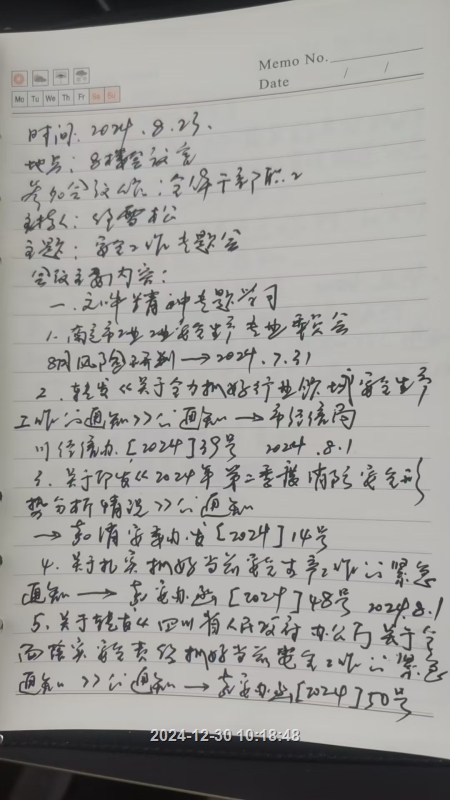 Memo No.
Date / /
Mo Tu We Th Fr Sa Su
时间: 2024.8.23.
地点: 8楼会议室
参加会议人员: 全体干部职工
主持人: 雪松
主题: 安全工作专题会
会议主要内容:
一. 文件精神专题学习
1. 南充市工业安全生产专业委员会
8月风险研判→2024.7.31
2. 转发《关于全力抓好行业领域安全生产
工作的通知》的通知→市经信局
川经信办[2024]39号 2024.8.1
3. 关于印发《2024年第二季度消防安全形
势分析情况》的通知
→ 消安委办发[2024]14号
4. 关于扎实抓好当前安全生产工作的紧急
通知→ 安办函[2024]48号 2024.8.1
5. 关于转发《四川省人民政府办公厅关于全
面落实安全责任抓好当前安全工作的紧急
通知》的通知→ 安办函[2024]50号
2024-12-30 10:18:48